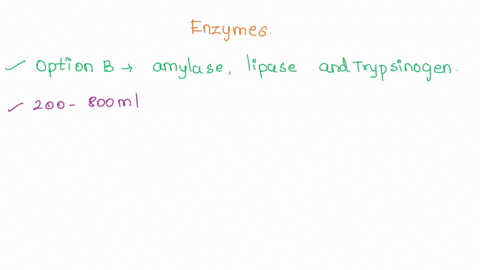 Enzymes.
✓ Option B → amylase, lipase and Trypsinogen.
✓ 200 - 800ml